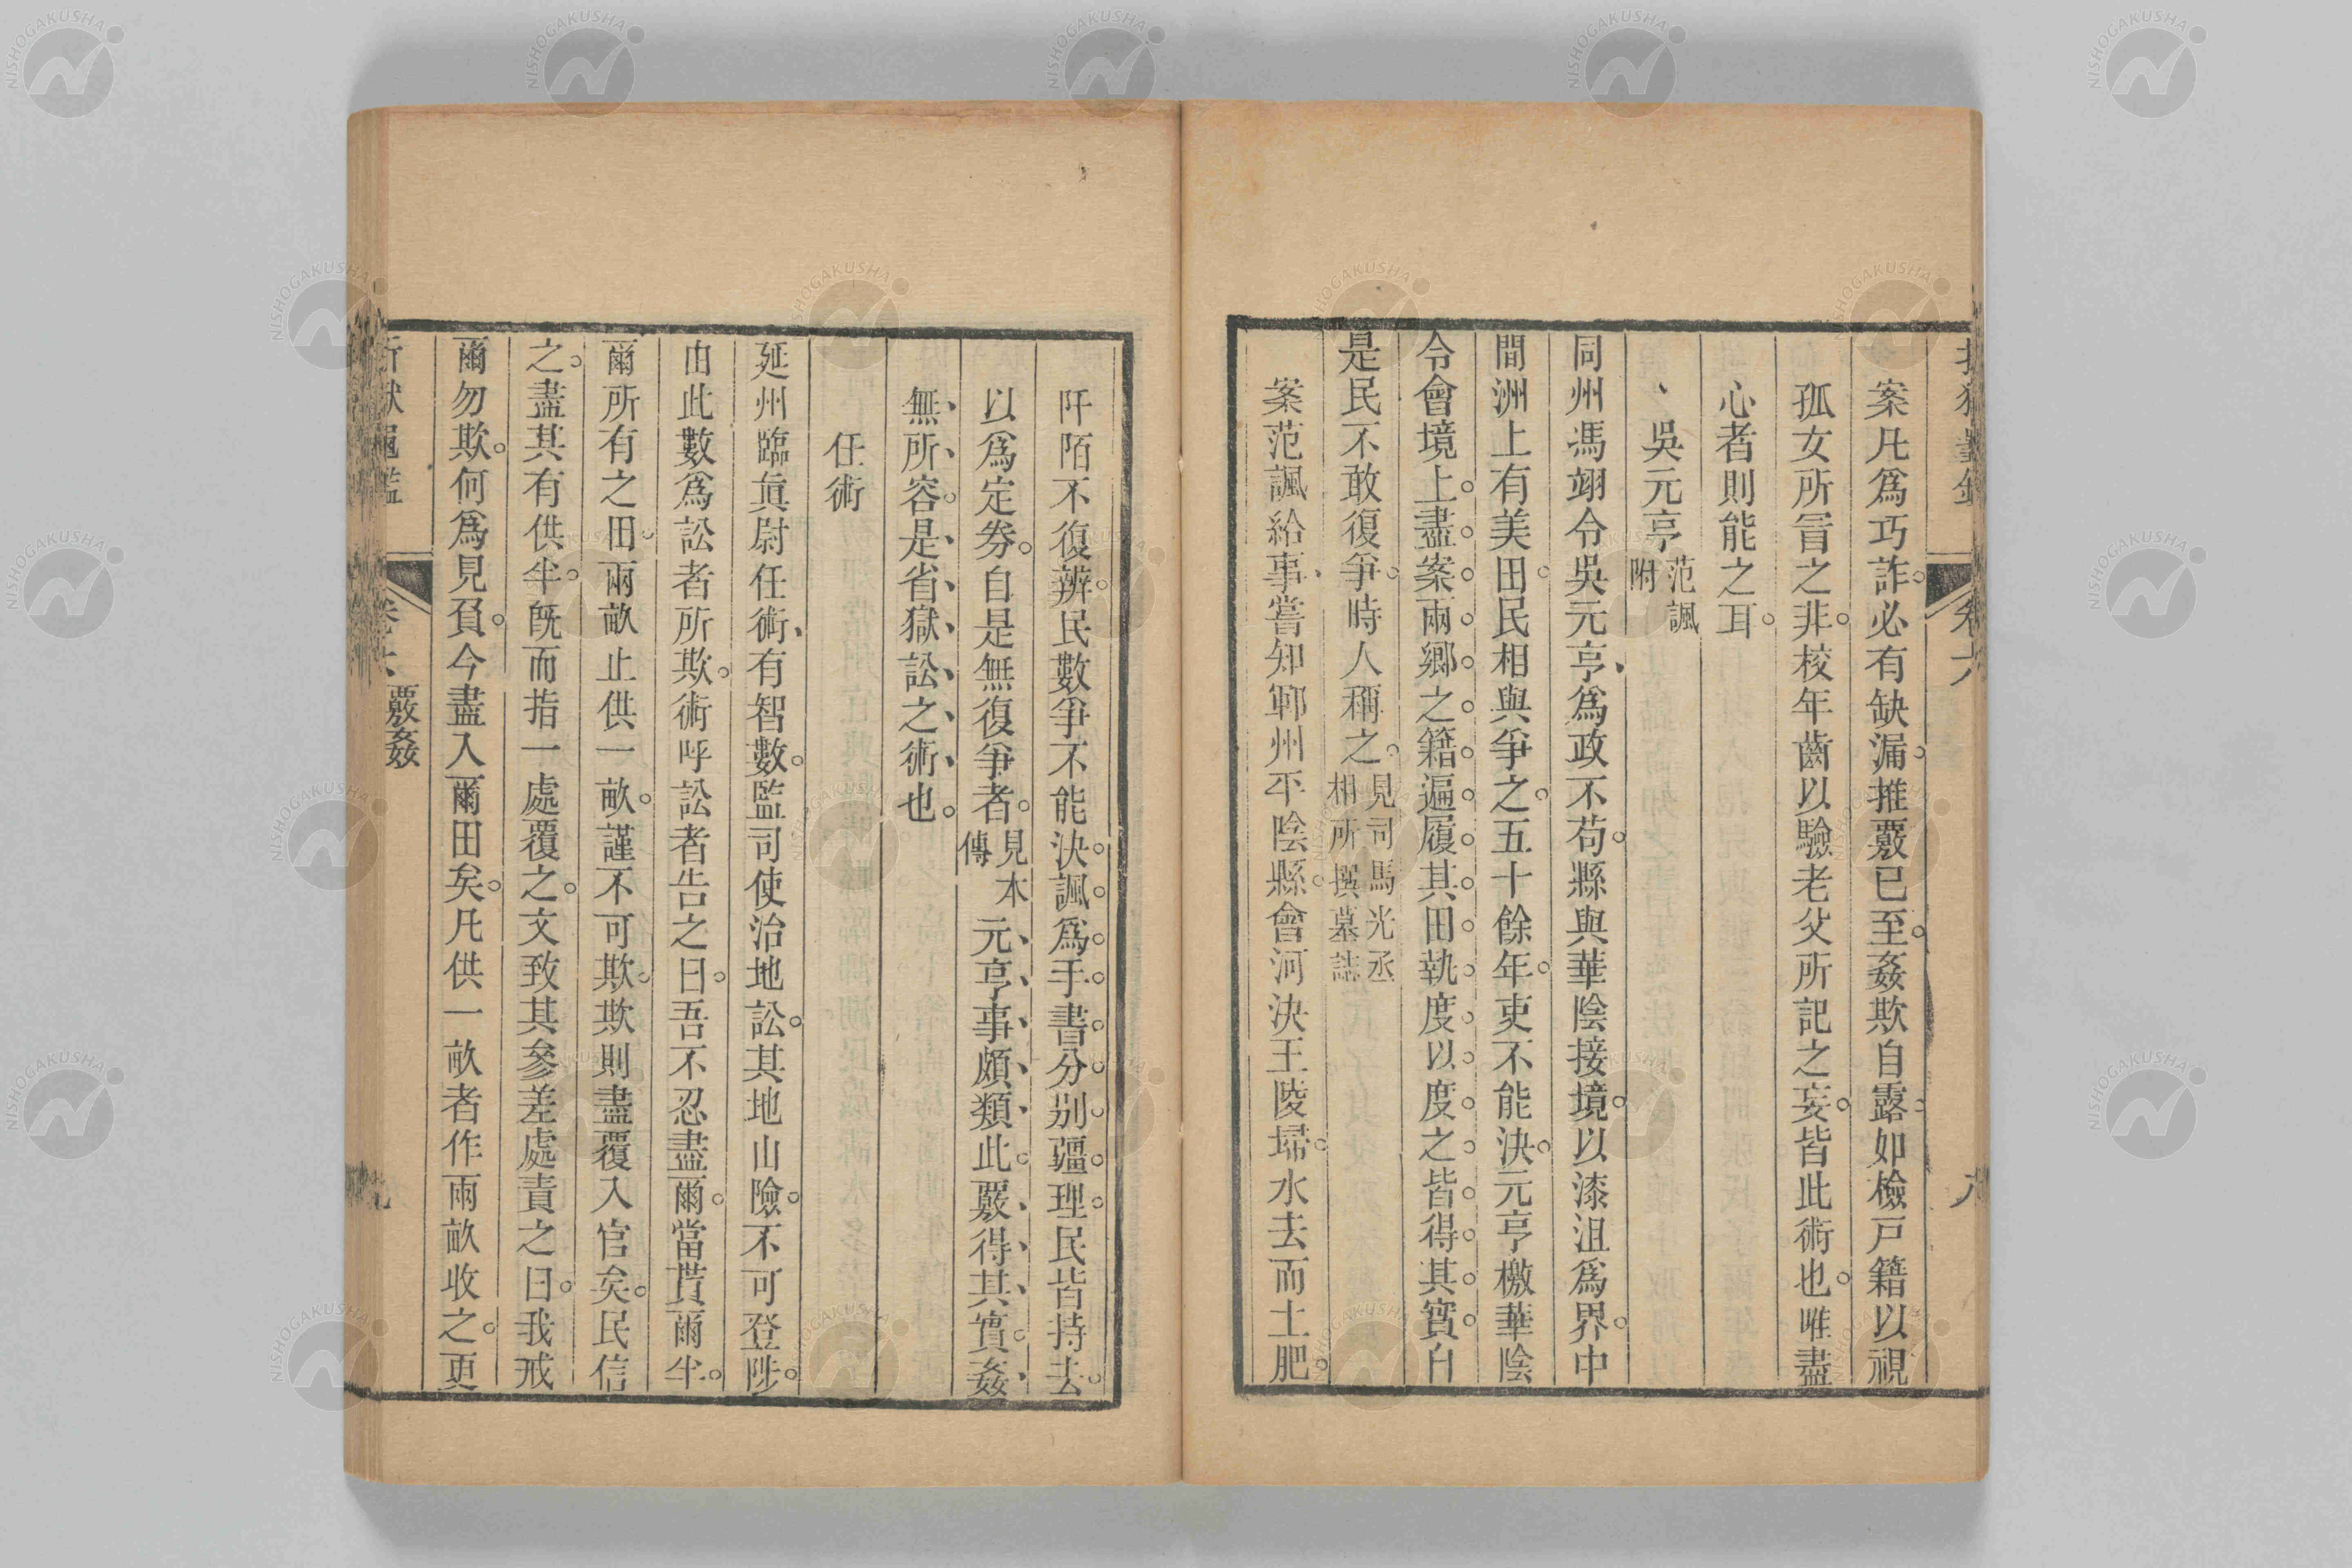 案凡爲巧詐必有缺漏推覈已至姦欺自露如檢戸籍以視
孤女所冒之非校年齒以驗老父所記之妄皆此術也唯盡
心者則能之耳
吳元亨 范諷附
同州馮翊令吳元亨爲政不苟縣與華陰接境以漆沮爲界中
間洲上有美田民相與爭之五十餘年吏不能決元亨檄華陰
令會境上盡案兩鄉之籍遍履其田執度以度之皆得其實自
是民不敢復爭時人稱之 見司馬光丞相所撰墓誌
案范諷給事嘗知鄆州平陰縣會河決王陵埽水去而土肥
阡陌不復辨民數爭不能決諷爲手書分别疆理民皆持去
以爲定劵自是無復爭者 見本傳 元亨事頗類此覈得其實姦
無所容是省獄訟之術也
任術
延州臨眞尉任術有智數監司使治地訟其地山險不可登陟
由此數爲訟者所欺術呼訟者告之曰吾不忍盡爾當貰爾半
爾所有之田兩畝止供一畝謹不可欺欺則盡覆入官矣民信
之盡其有供半既而指一處覆之文致其參差處責之曰我戒
爾勿欺何爲見負今盡入爾田矣凡供一畝者作兩畝收之更
折獄龜鑑 卷六 覈姦 九
NISHOGAKUSHA